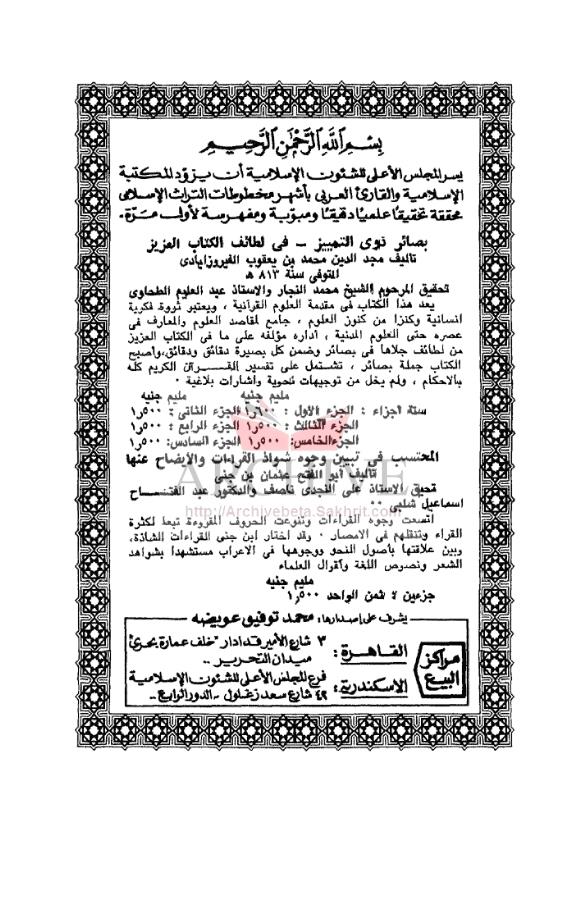 بسم الله الرحمن الرحيم
يسر المجلس الأعلى للشئون الإسلامية أن يزود المكتبة
الإسلامية والقارئ العربي بأشهر مخطوطات التراث الإسلامى
محققة تحقيقًا علميًا دقيقًا ومبوبة ومفهرسة لأول مرة.
بصائر ذوى التمييز ـ فى لطائف الكتاب العزيز
تأليف مجد الدين محمد بن يعقوب الفيروزابادى
المتوفى سنة ٨١٣ هـ
تحقيق المرحوم الشيخ محمد النجار والاستاذ عبد العليم الطحاوى
يعد هذا الكتاب فى مقدمة العلوم القرآنية ، ويعتبر ثروة فكرية
انسانية وكنزا من كنوز العلوم ، جامع لمقاصد العلوم والمعارف فى
عصره حتى العلوم المدنية ، اداره مؤلفه على ما فى الكتاب العزيز
من لطائف جلاها فى بصائر وضمن كل بصيرة دقائق ودقائق،وأصبح
الكتاب جملة بصائر ، تشتمل على تفسير القرآن الكريم كله
بالاحكام ، ولم يخل من توجيهات نحوية واشارات بلاغية ٠
مليم جنيه مليم جنيه
ستة اجزاء : الجزء الاول : ٦٠٠ر١ الجزء الثانى : ٥٠٠ر١
الجزء الثالث : ٥٠٠ر١ الجزء الرابع : ٥٠٠ر١
الجزء الخامس: ٥٠٠ر١ الجزء السادس: ٥٠٠ر١
المحتسب فى تبيين وجوه شواذ القراءات والايضاح عنها
ARCHIVE
تأليف أبو الفتح عثمان بن جنى
تحقيق الاستاذ على النجدى ناصف والدكتور عبد الفتاح
http://Archivebeta.Sakhrit.com
اسماعيل شلبى ٠٠
اتسعت وجوه القراءات وتنوعت الحروف المقروءة تبعا لكثرة
القراء وتنقلهم فى الامصار ٠ وقد اختار ابن جنى القراءات الشاذة،
وبين علاقتها بأصول النحو ووجوهها فى الاعراب مستشهدا بشواهد
الشعر ونصوص اللغة وأقوال العلماء
مليم جنيه
جزءين ؛ ثمن الواحد ٥٠٠ر١
يشرف على إصدارها: محمد توفيق عويضه
مراكز البيع
القاهرة : ٣ شارع الأمير قدادار "خلف عمارة بحرى"
ميدان التحرير ..
الاسكندرية : فرع المجلس الأعلى للشئون الإسلامية
٤٢ شارع سعد زغلول - الدور الرابع ..